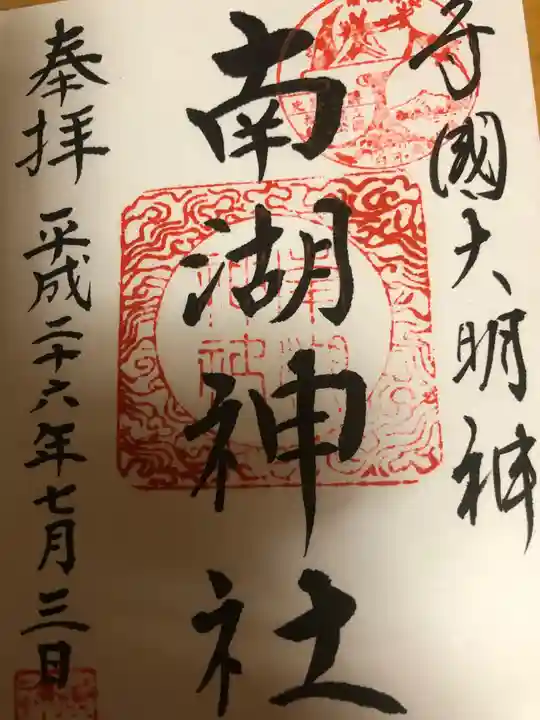 守國大明神
南湖神社
奉拝 平成二十六年七月三日
南湖
神社